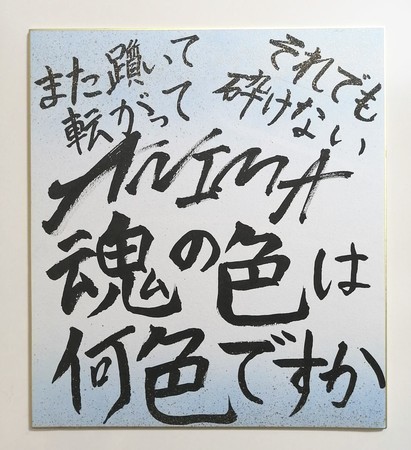 また躓いて
転がって
それでも
砕けない
ANIMA
魂の色は
何色ですか